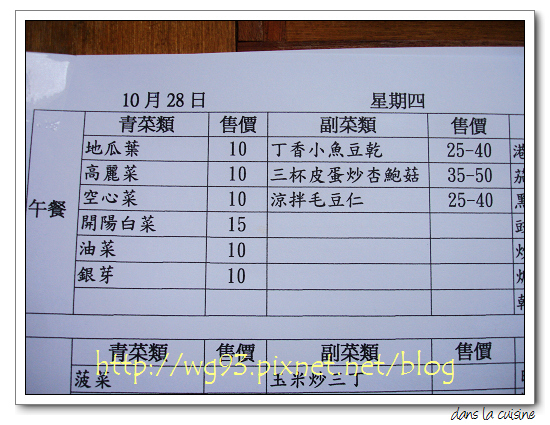 10月28日 星期四
青菜類 售價 副菜類 售價
午餐
地瓜葉 10 丁香小魚豆乾 25-40
高麗菜 10 三杯皮蛋炒杏鮑菇 35-50
空心菜 10 涼拌毛豆仁 25-40
開陽白菜 15
油菜 10
銀芽 10
青菜類 售價 副菜類 售價
http://wg95.pixnet.net/blog
菠菜 玉米炒三丁
dans la cuisine